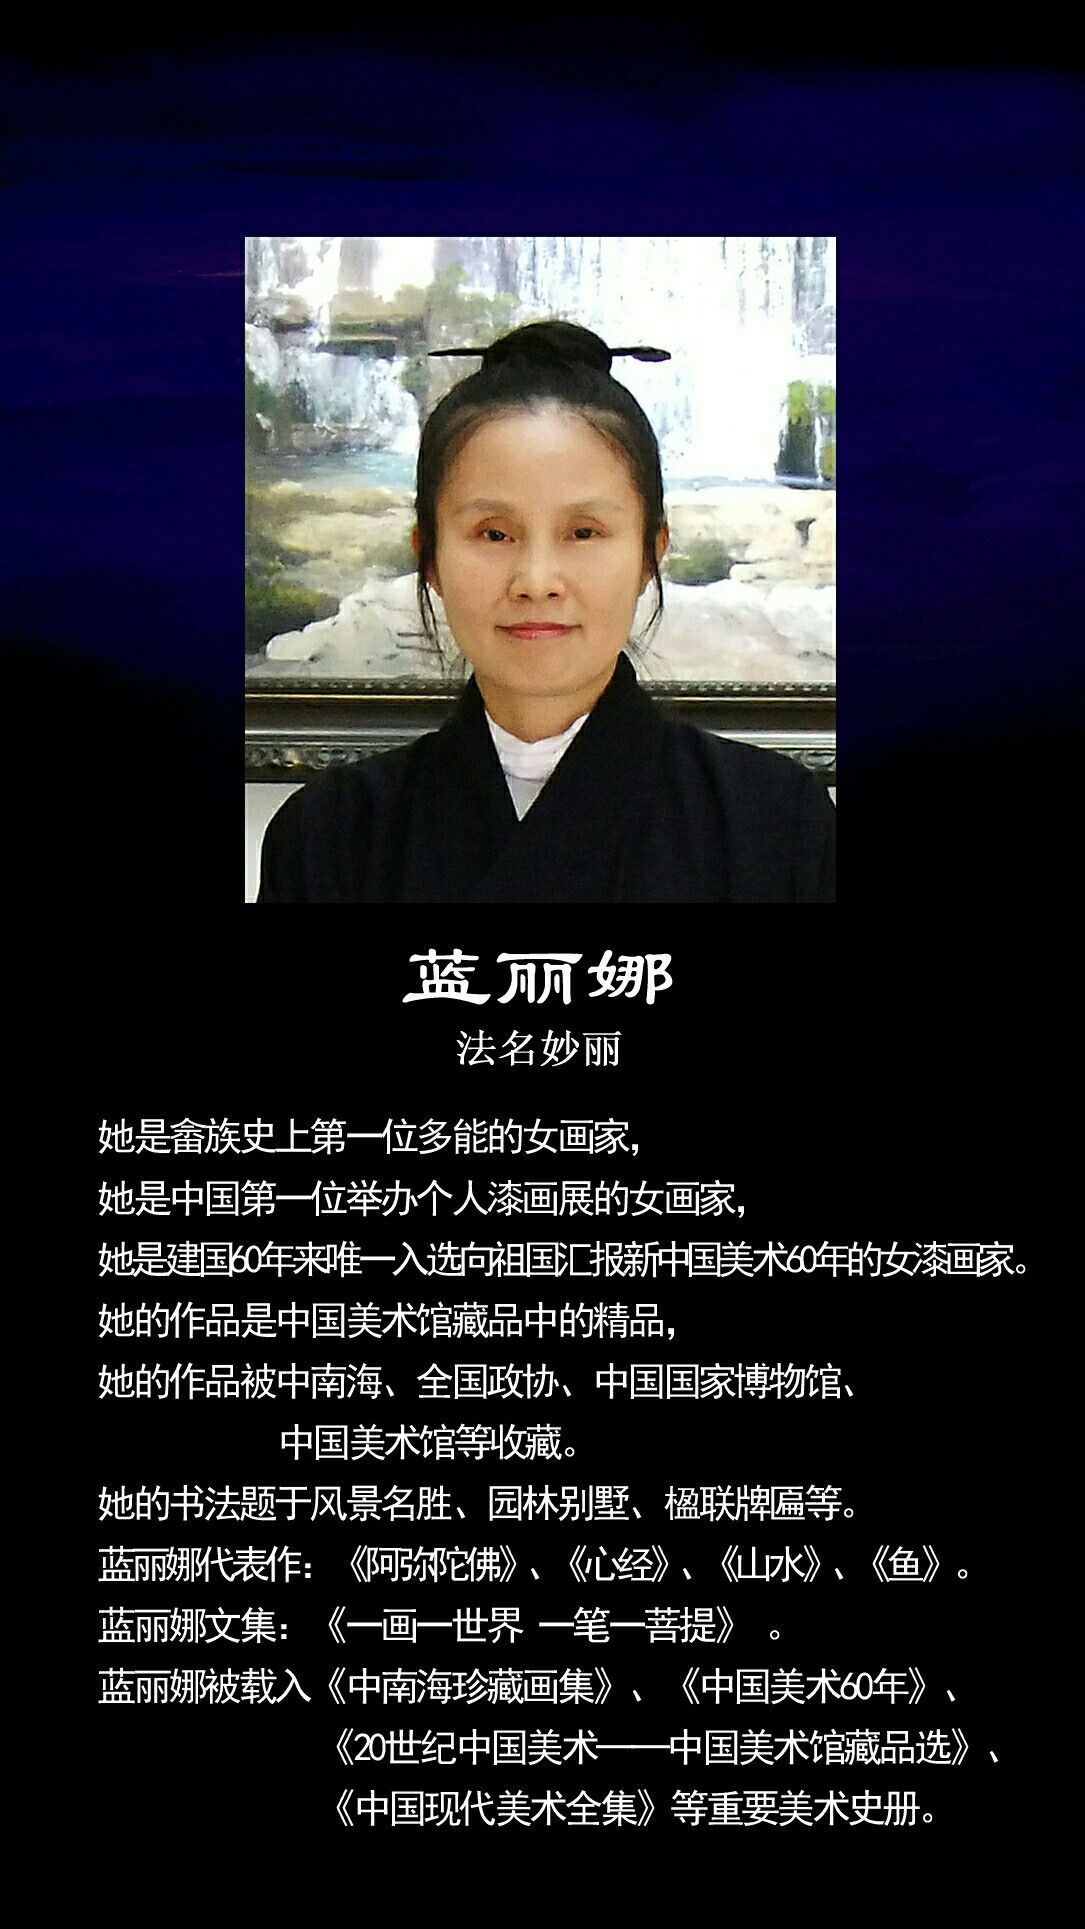 蓝丽娜
法名妙丽
她是畲族史上第一位多能的女画家，
她是中国第一位举办个人漆画展的女画家，
她是建国60年来唯一入选向祖国汇报新中国美术60年的女漆画家。
她的作品是中国美术馆藏品中的精品，
她的作品被中南海、全国政协、中国国家博物馆、
中国美术馆等收藏。
她的书法题于风景名胜、园林别墅、楹联牌匾等。
蓝丽娜代表作：《阿弥陀佛》、《心经》、《山水》、《鱼》。
蓝丽娜文集：《一画一世界 一笔一菩提》 。
蓝丽娜被载入《中南海珍藏画集》、《中国美术60年》、
《20世纪中国美术——中国美术馆藏品选》、
《中国现代美术全集》等重要美术史册。